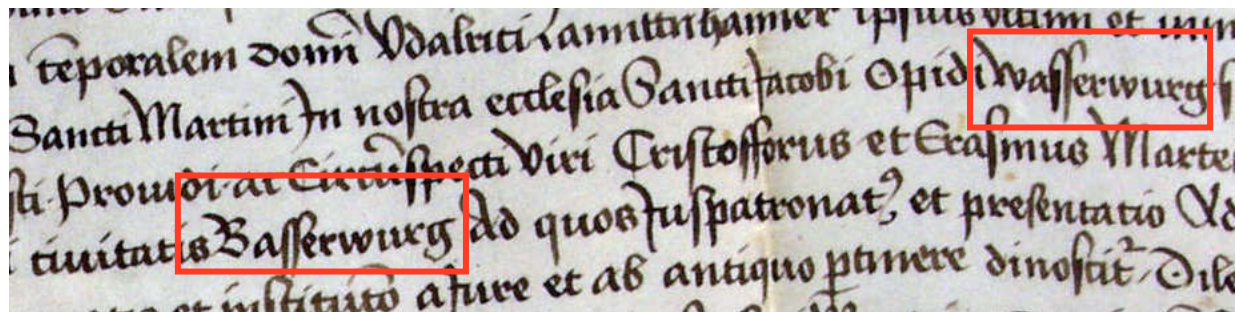 tēporalem domī Vdalrici Lanuttnhamer ipsius vltimi et
Sancti Martini In nostra ecclesia Sancti Jacobi Opidi Wasserwurg
Prouidi ac Circūspecti Viri Cristofforus et Erasmus
ciuitatis Basserwurg Ad quos Juspatronat9 et presentatio
et institutō a Jure et ab antiquo ptinere dinoscit